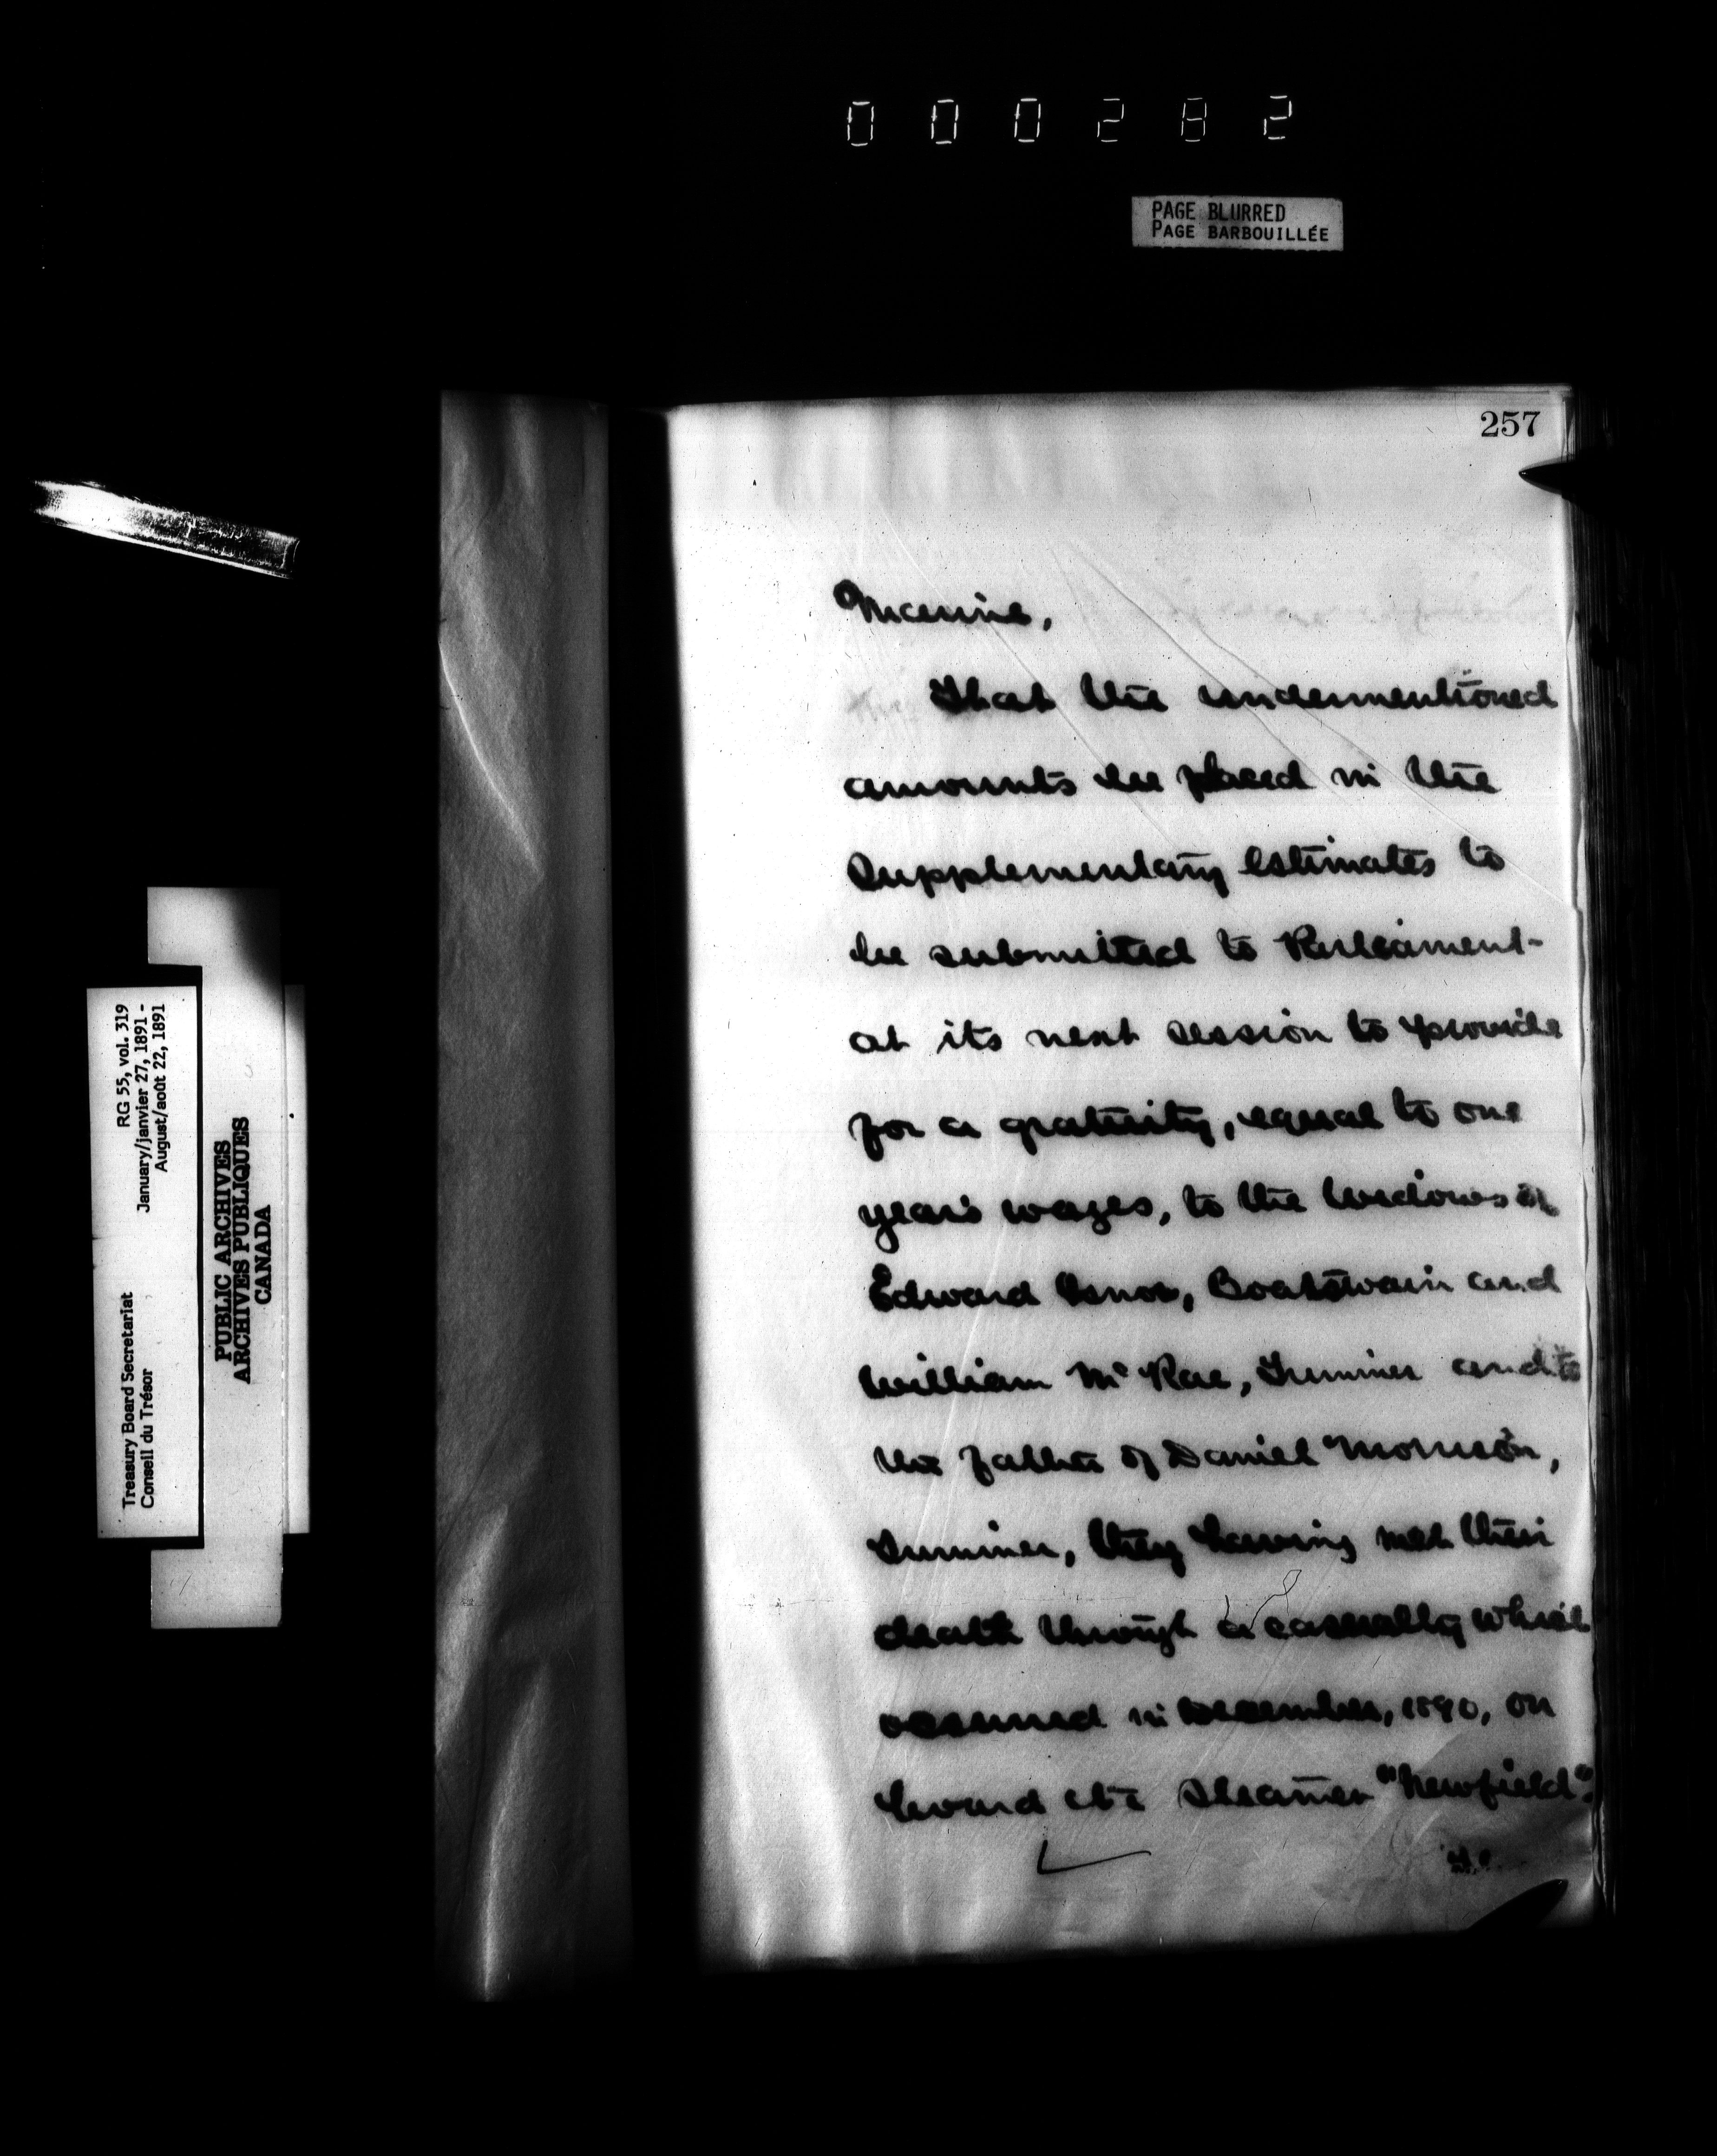 000282
PAGE BLURRED
PAGE BARBOUILLÉE
257
Marine,
That the undermentioned
amounts be placed in the
Supplementary Estimates to
be submitted to Parliament
at its next session to provide
for a gratuity, equal to one
year's wages, to the widows of
Edward Isnor, Boatswain and
William McRae, Trimmer and to
the father of Daniel Morrison,
Trimmer, they having met their
death through a casualty which
occurred in December, 1890, on
board the Steamer "Newfield".
Treasury Board Secretariat RG 55, vol. 319
Conseil du Trésor January/janvier 27, 1891 -
August/août 22, 1891
PUBLIC ARCHIVES
ARCHIVES PUBLIQUES
CANADA